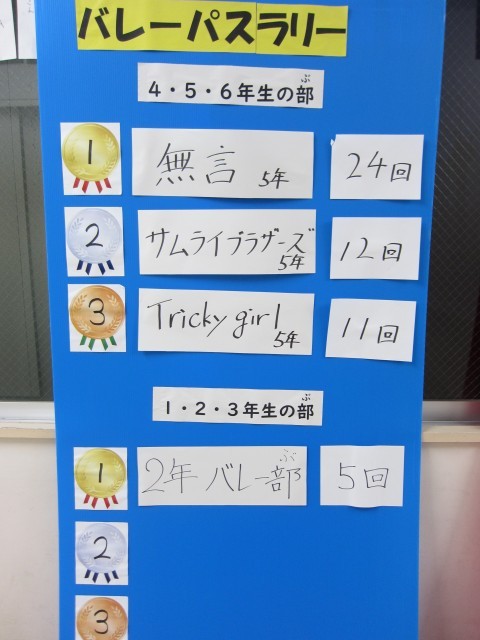 バレーパスラリー
ぶ
4・5・6年生の部
1
無言 5年
24回
2
サムライブラザーズ
5年
12回
3
Tricky girl
5年
11回
ぶ
1・2・3年生の部
1
ぶ
2年 バレー部
5回
2
3